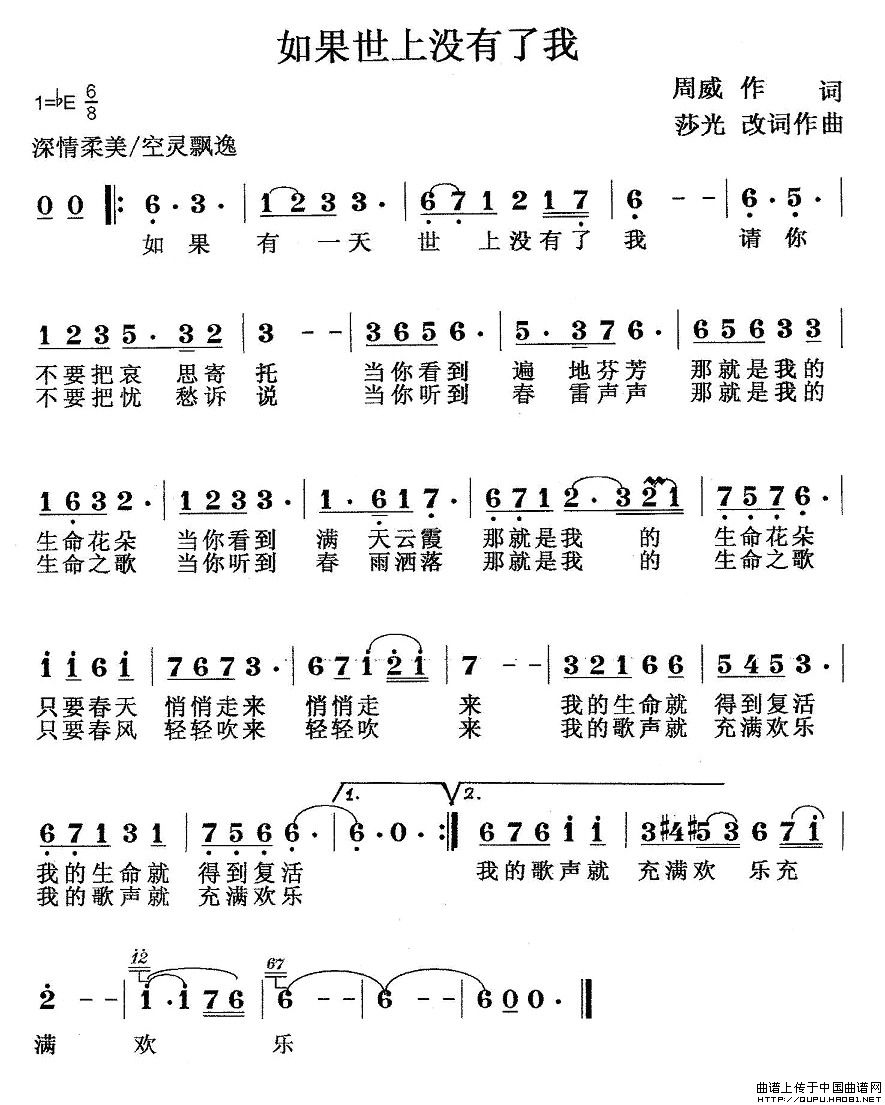 如果世上没有了我
1=♭E 6/8
周威 作 词
莎光 改词作曲
深情柔美/空灵飘逸
0 0 ‖: 6· 3· | 1 2 3 3· | 6 7 1 2 1 7 | 6 - - | 6· 5· |
如 果 有 一 天 世 上 没 有 了 我 请 你
1 2 3 5· 3 2 | 3 - - | 3 6 5 6· | 5· 3 7 6· | 6 5 6 3 3 |
不要把哀 思寄 托 当你看到 遍 地芬芳 那就是我的
不要把忧 愁诉 说 当你听到 春 雷声声 那就是我的
1 6 3 2· | 1 2 3 3· | 1· 6 1 7· | 6 7 1 2· 3 2 1 | 7 5 7 6· |
生命花朵 当你看到 满 天云霞 那就是我 的 生命花朵
生命之歌 当你听到 春 雨洒落 那就是我 的 生命之歌
i i 6 i | 7 6 7 3· | 6 7 i 2 i | 7 - - | 3 2 1 6 6 | 5 4 5 3· |
只要春天 悄悄走来 悄悄走 来 我的生命就 得到复活
只要春风 轻轻吹来 轻轻吹 来 我的歌声就 充满欢乐
1. 2.
6 7 1 3 1 | 7 5 6 6 6· | 6· 0· :‖ 6 7 6 i i | 3 #4 #5 3 6 7 i |
我的生命就 得到复活 我的歌声就 充满欢 乐充
我的歌声就 充满欢乐
i2 67
2 - - | i· i 7 6 | 6 - - | 6 - - | 6 0 0 0· ‖
满 欢 乐
曲谱上传于中国曲谱网
HTTP://QUPU.HAO81.NET